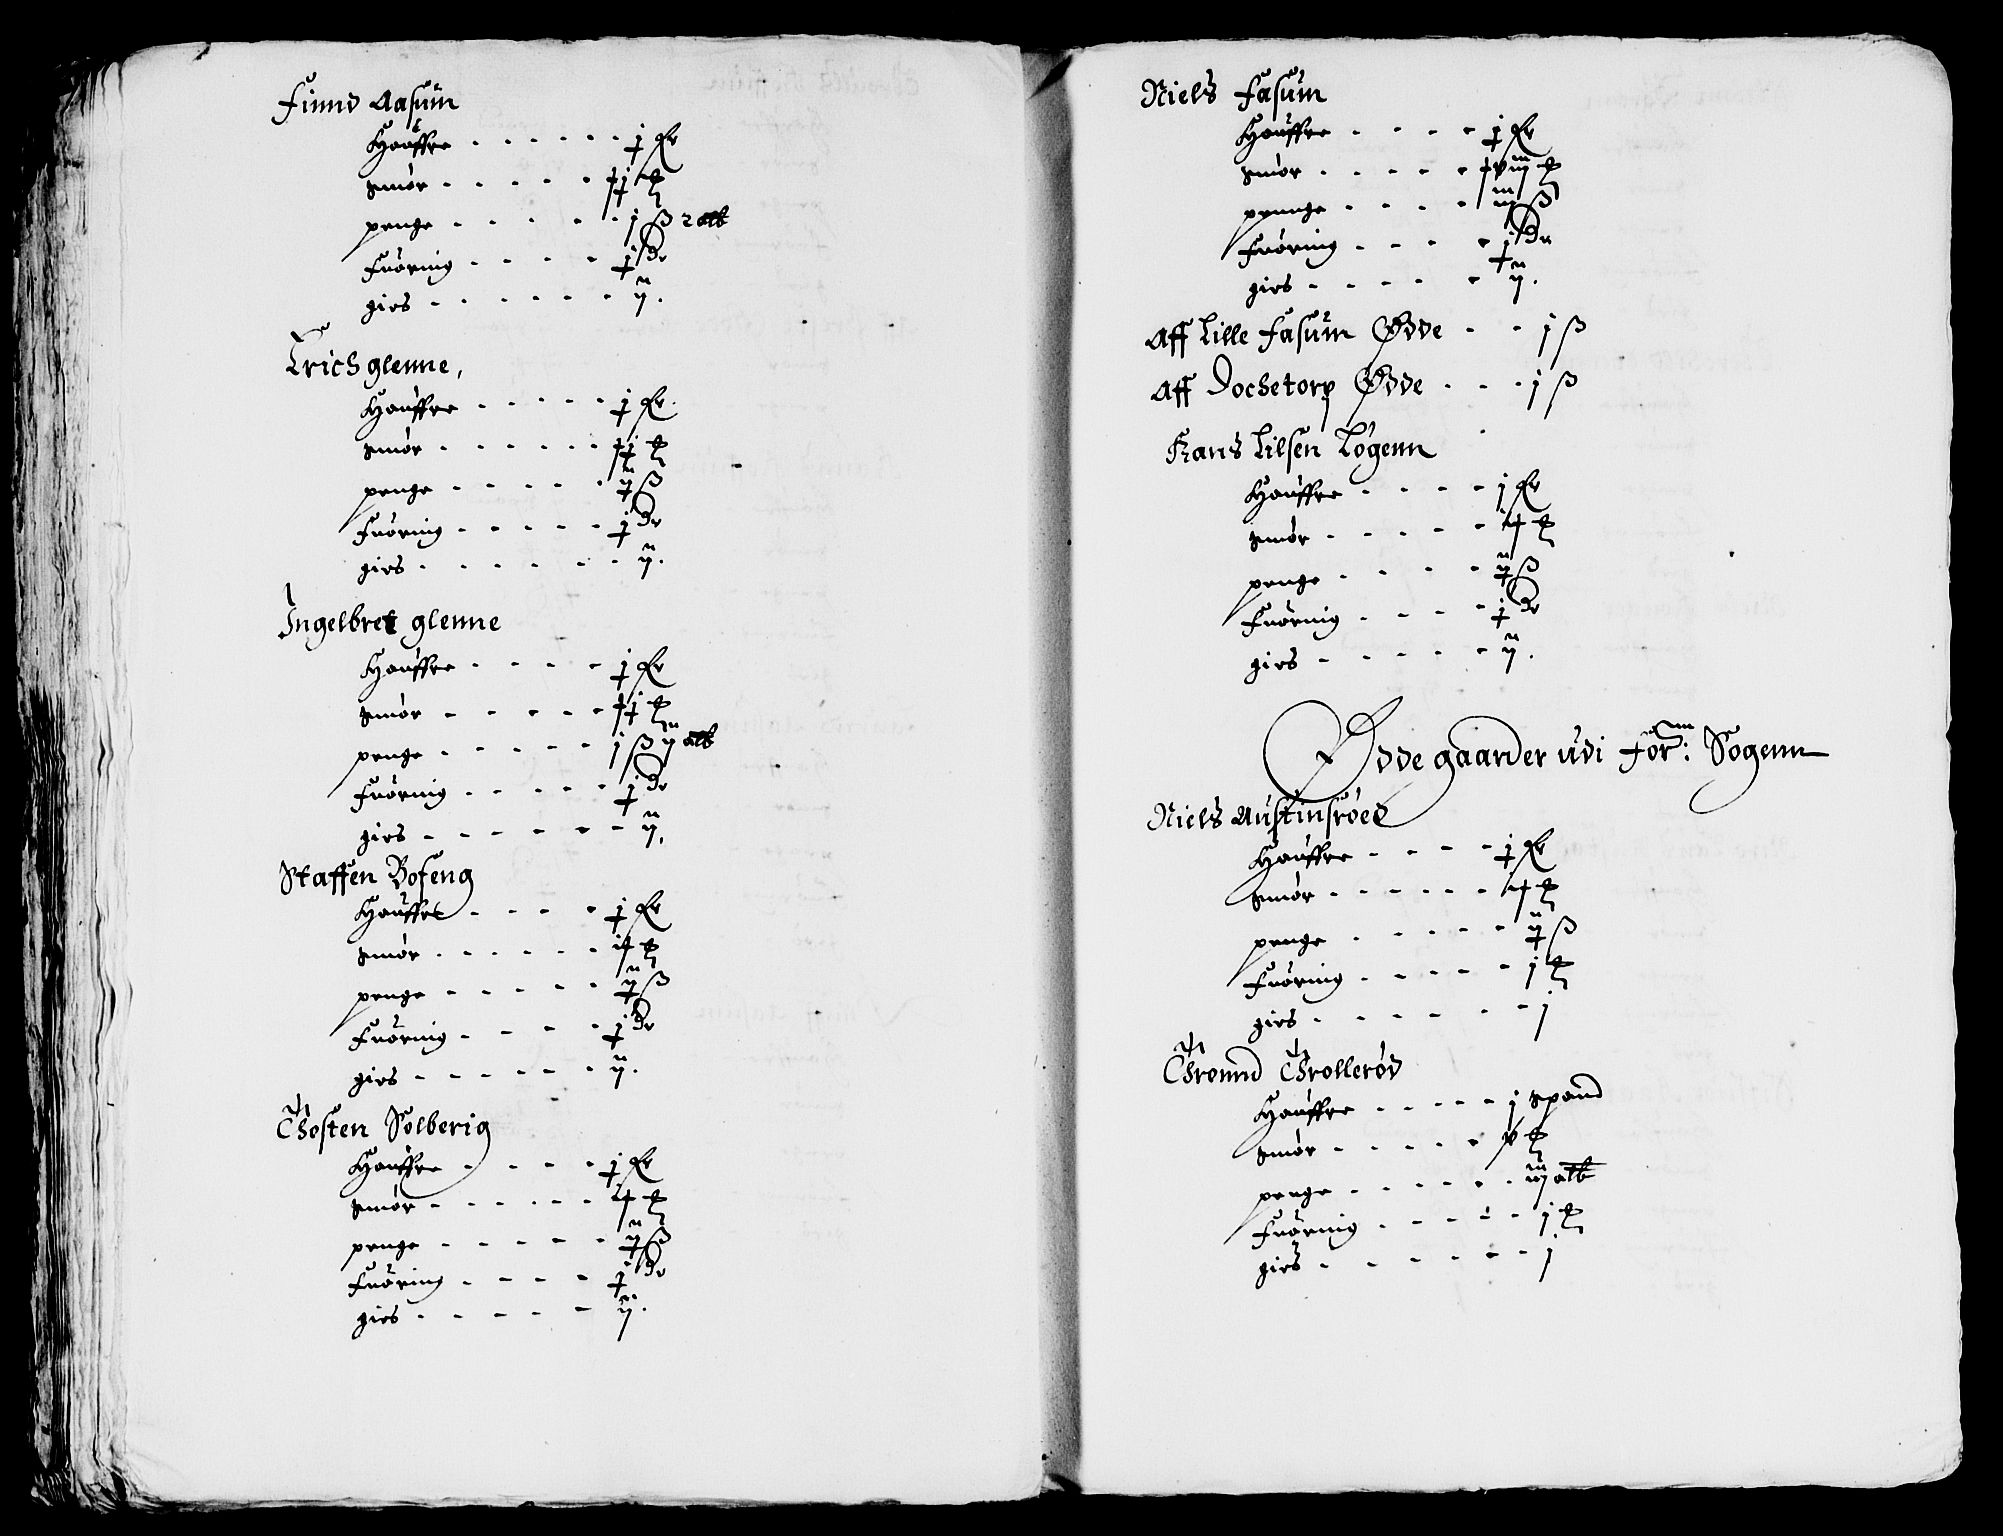 Finnd Aasum
Hauffre - - - - - - j
smør - - - - -
penge - - - - - j ß 2 alb
Fuöring - - - - j
girs - - - - - - ij.
Erich glenne,
Hauffre - - - - - j
smør - - - - - -
penge - - - - - ij ß
Fuöring - - - - - j
girs - - - - - - ij.
Ingelbret glenne
Hauffre - - - - j
smør - - - - -
penge - - - - - j ß ij alb
Fuöring - - - - - j
girs - - - - - - ij.
Staffen Bofeng
Hauffre - - - - j
smør - - - - - -
penge - - - - - ij ß
Fuöring - - - - j
girs - - - - - - ij.
Thosten Solberig
Hauffre - - - - j
smør - - - - - -
penge - - - - - ij ß
Fuöring - - - - j
girs - - - - - ij.
Niels Fasum
Hauffre - - - - j
smør - - - - -
pennge - - - - iiij ß
Fuöring - - - - j
girs - - - - - ij.
Aff Lille Fasum Ødde - - j ß
Aff Dochetorp Ødde - - - j ß
Hans Lilsen Løgenn
Hauffre - - - - j
smør - - - - -
penge - - - - ij ß
Fuöring - - - - j
girs - - - - - ij.
Ødde gaarder udi For:nn Sogenn
Niels Austinsröed
Hauffre - - - - j
smør - - - - - -
penge - - - - - ij ß
Fuöring - - - - - j
girs - - - - - - j
Thronnd Throllerød
Hauffre - - - - - j spand
smør - - - - -
penge - - - - - - iiij alb
Fuöring - - - - - j
girs - - - - - - j